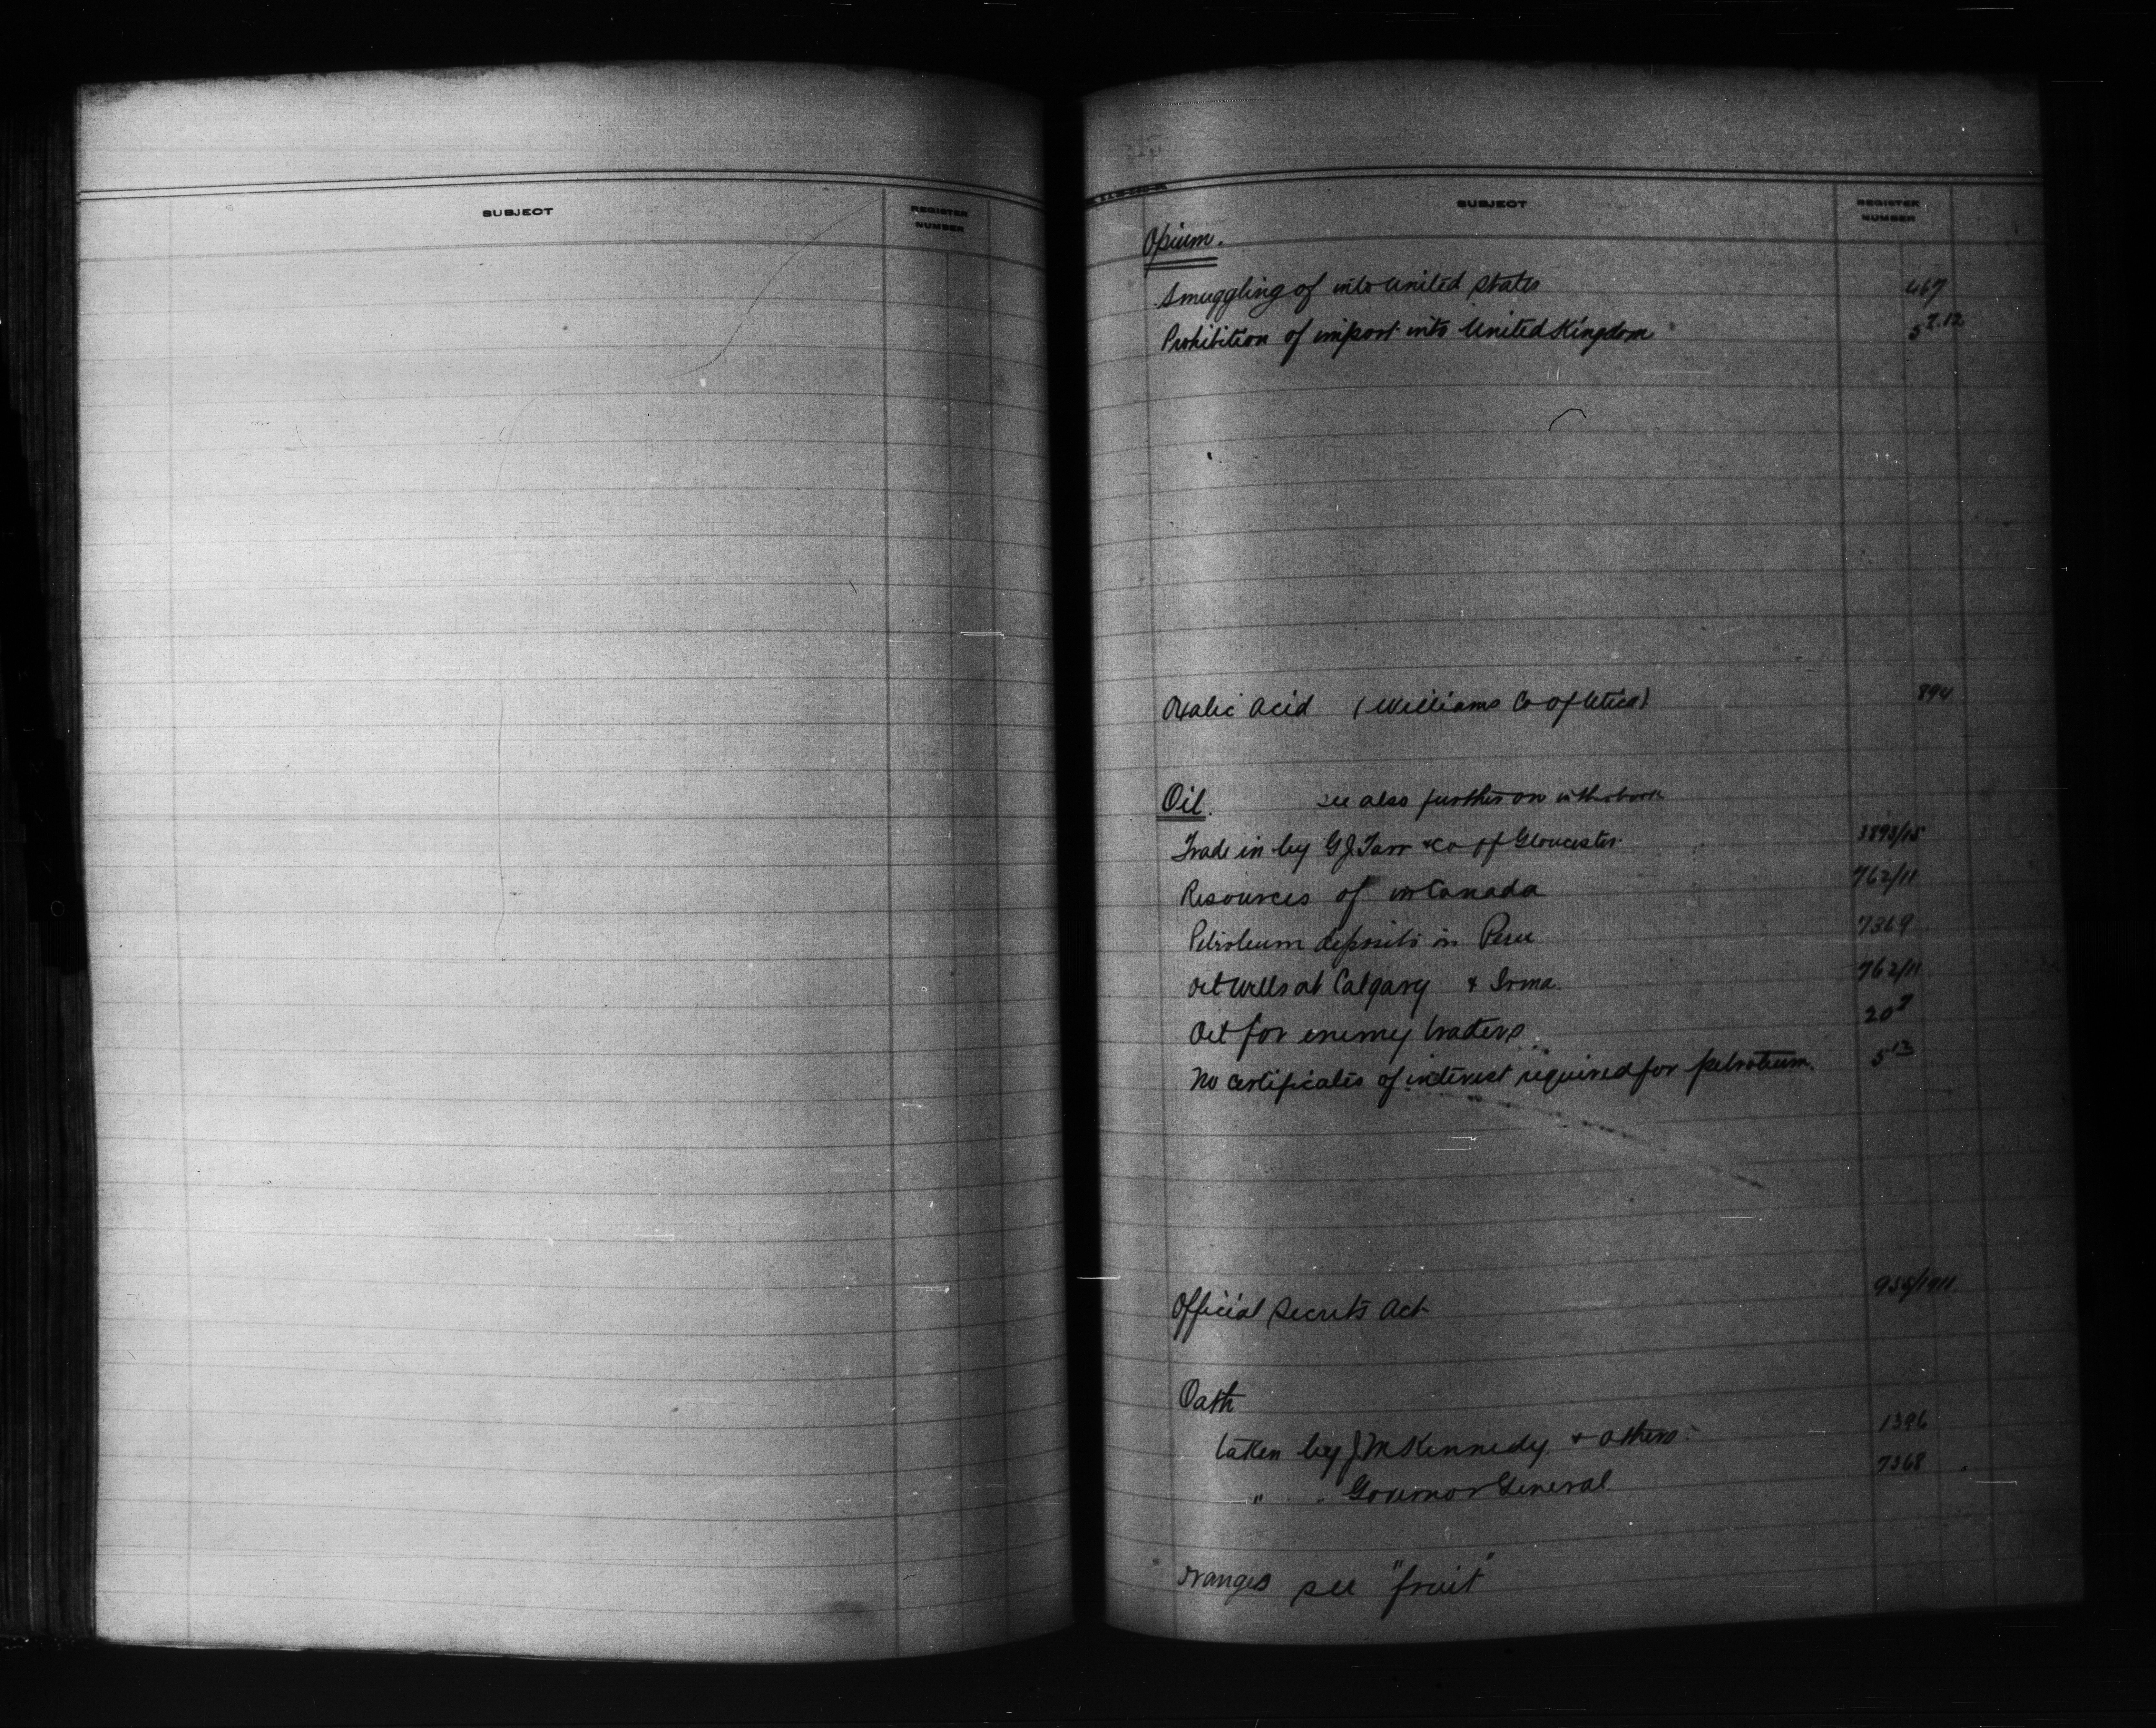 SUBJECT
REGISTER
NUMBER
SUBJECT
REGISTER
NUMBER
Opium.
Smuggling of into United States 467
Prohibition of import into United Kingdom 5 7.12
Oxalic Acid (Williams Co of Utica) 894
Oil. see also further on in this book
Trade in by G J Tarr & Co of Gloucester 3893/15
Resources of in Canada 762/11
Petroleum deposits in Peru 7369
Oil Wells at Calgary & Irma 762/11
Oil for enemy traders 20 7
No certificates of interest required for petroleum. 5 12
Official Secrets Act 955/1911
Oath
taken by J M Kennedy & others 1396
" " Governor General 7368
Oranges see "fruit"